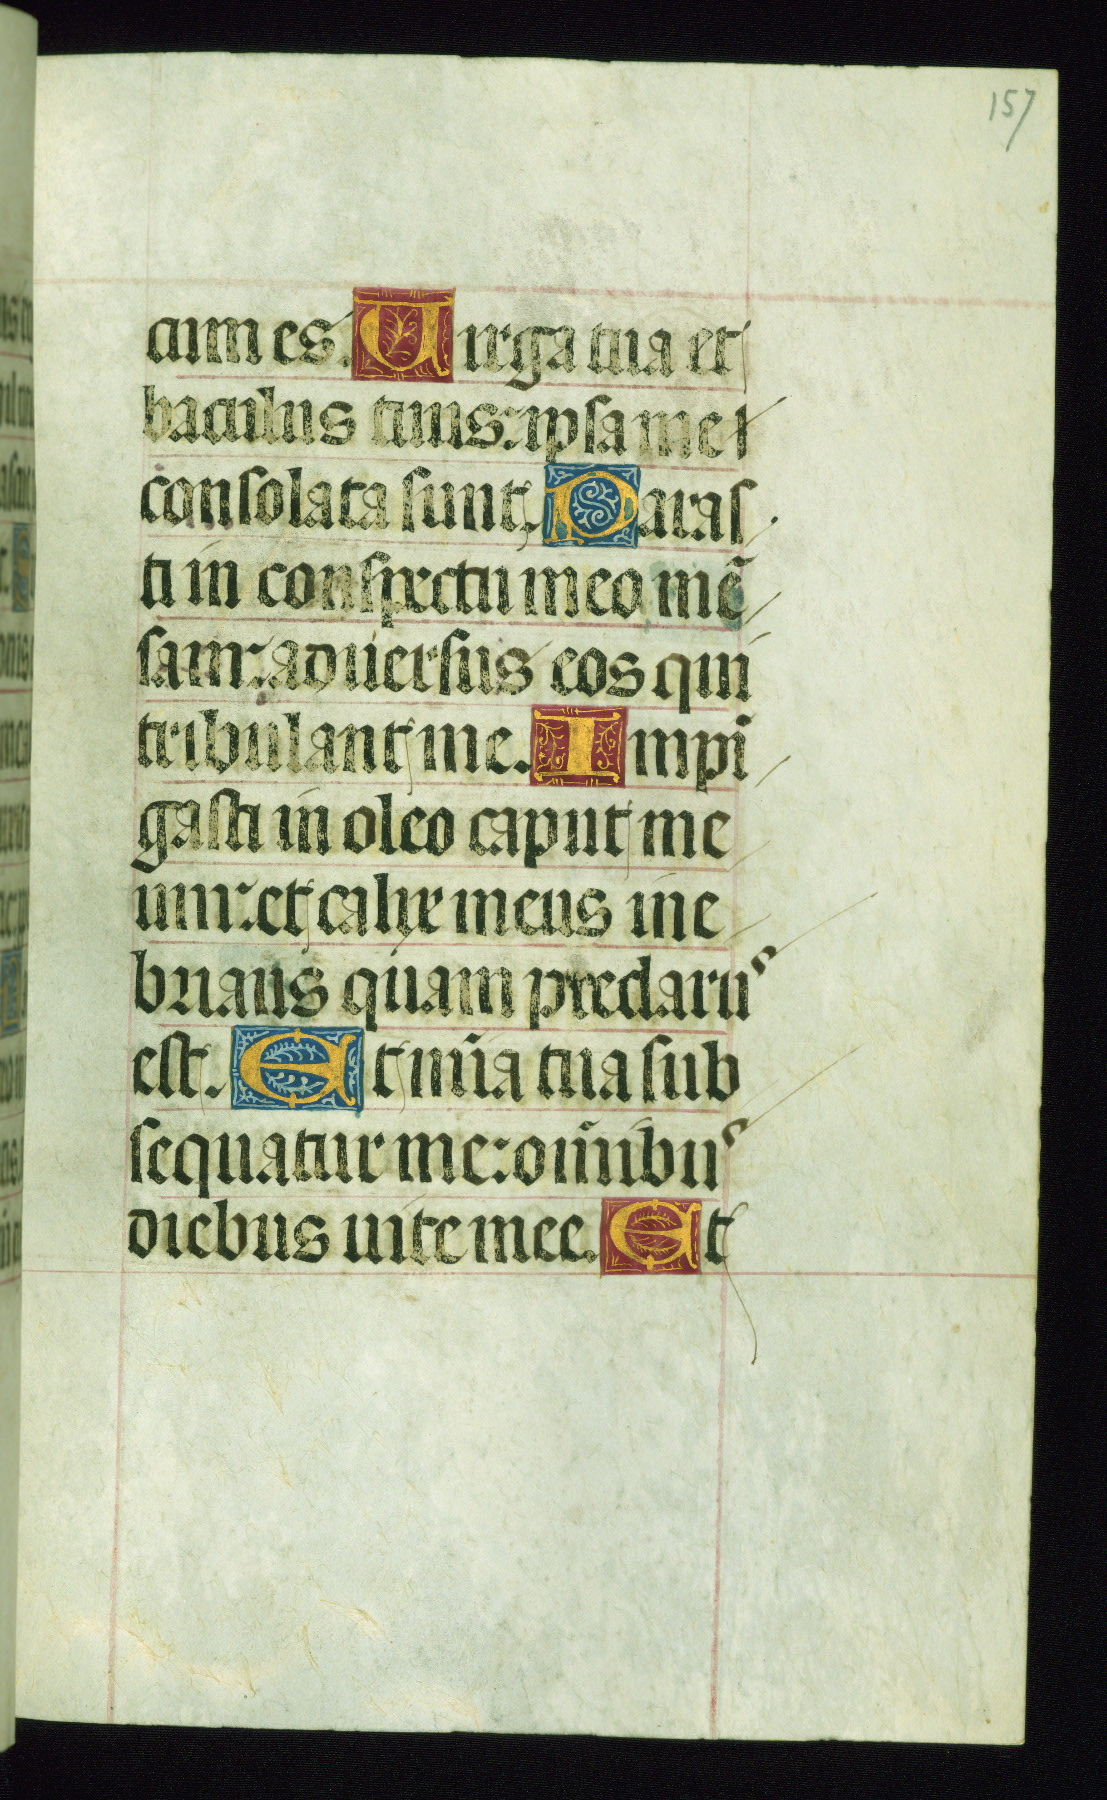 157
cum es. Uirga tua et
baculus tuus: ipsa me
consolata sunt. Paras
ti in conspectu meo mē
sam: aduersus eos qui
tribulant me. Impi
gasti in oleo caput me
um: et calix meus ine
brians quam preclarus
est. Et mīa tua sub
sequatur me: om̄ibus
diebus uite mee. Et